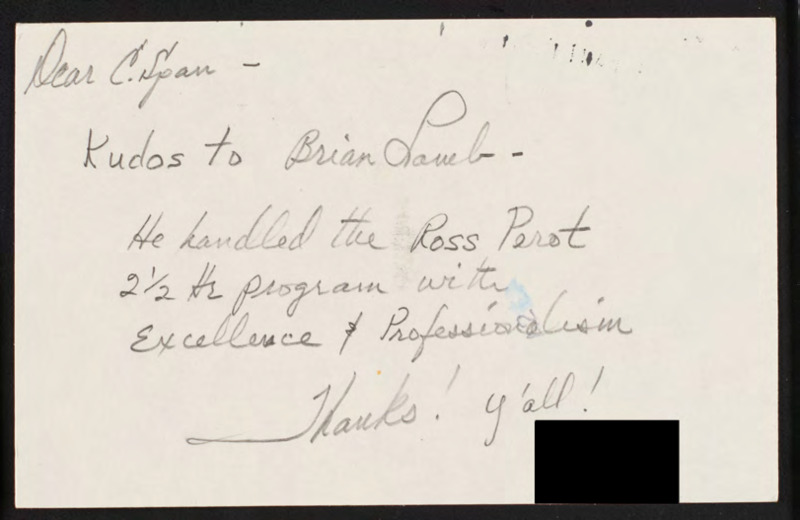 Dear C. Span -
Kudos to Brian Lamb -
He handled the Ross Perot
2 1/2 Hr program with
Excellence & Professionalism
Thanks! Y'all!